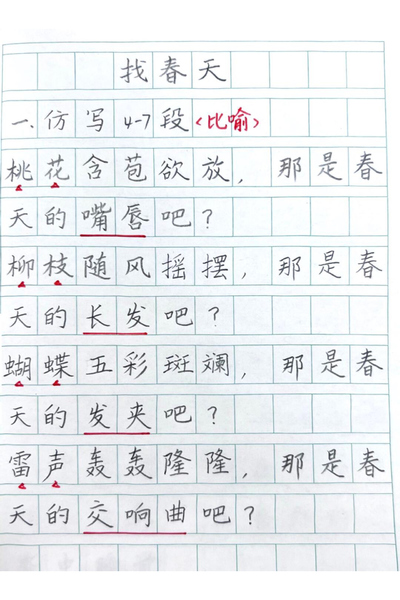 找春天
一、仿写4-7段(比喻)
桃花含苞欲放,那是春
天的嘴唇吧?
柳枝随风摇摆,那是春
天的长发吧?
蝴蝶五彩斑斓,那是春
天的发夹吧?
雷声轰轰隆隆,那是春
天的交响曲吧?